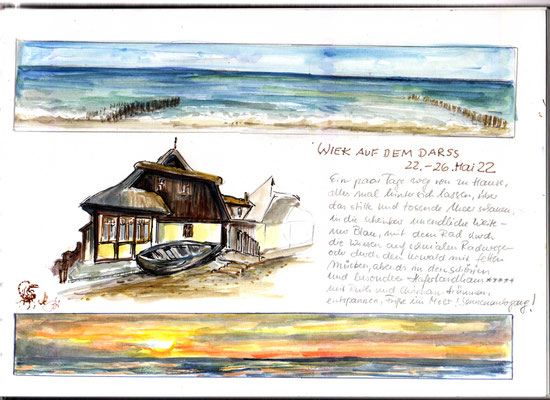 WIEK AUF DEM DARSS
22.-26. Mai 22
Ein paar Tage weg von zu Hause,
alles mal hinter sich lassen, über
das stille und tosende Meer schauen,
in die scheinbar unendliche Weite –
nur Blau, mit dem Rad durch
die Wiesen auf schmalen Radwegen
oder durch den Urwald mit fetten
Mücken, abends in den schönen
und besonderen
und Christian
entspannen, Füße im Meer! Sonnenuntergang!